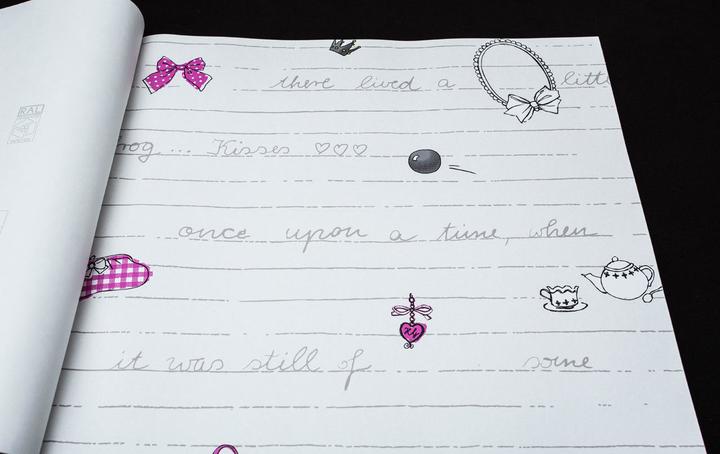 RAL
there lived a littl
rog ... Kisses ♡♡♡
once upon a time, when
it was still of some